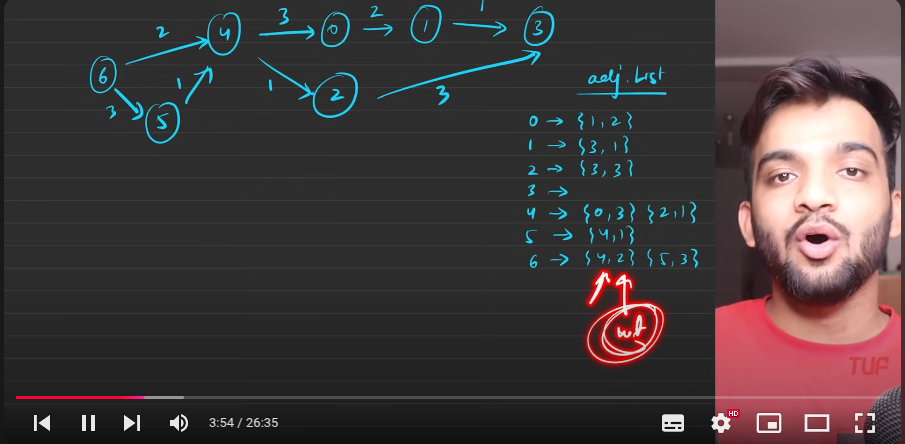 2
4
3
0
2
1
1
3
6
3
1
5
1
2
3
adj. List
0 → {1,2}
1 → {3,1}
2 → {3,3}
3 →
4 → {0,3} {2,1}
5 → {4,1}
6 → {4,2} {5,3}
wt
TUF
3:54 / 26:35
HD